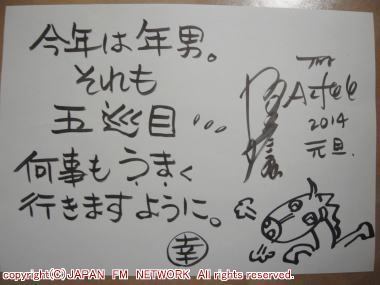 今年は年男。
それも
五巡目…
何事もうまく
行きますように。
幸
THE ALFEE
2014
元旦.
copyright(C)JAPAN FM NETWORK All rights reserved.